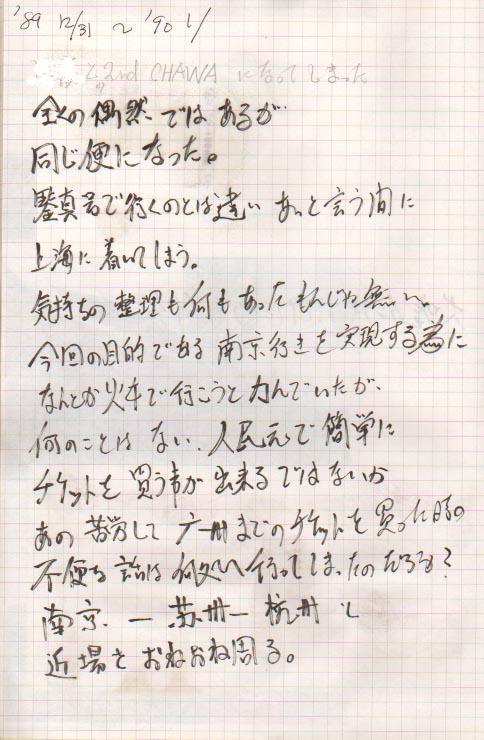 '89 12/31 ~ '90 1/
と 2nd CHAWA になってしまった
全くの偶然ではあるが
同じ便になった。
鑒真号で行くのとは違い あっと言う間に
上海に着いてしまう。
気持ちの整理も何もあったもんじゃ無い。
今回の目的である南京行きを実現する為に
なんとか火车で行こうと力んでいたが、
何のことはない、人民元で簡単に
チケットを買う事が出来るではないか
あの苦労して广州までのチケットを買った時の
不便な話は何処へ行ってしまったのだろう?
南京 — 苏州 — 杭州 と
近場をおねおね周る。